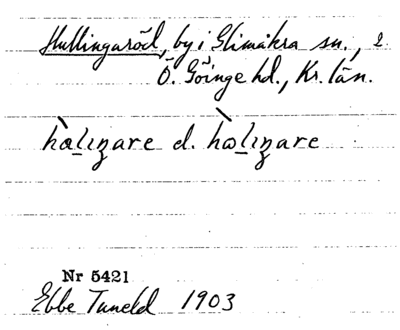 Hullingaröd, by i Glimåkra sn., 2
Ö. Göinge hd., Kr. län.
hàlıŋare d. hòlıŋare
Nr 5421
Ebbe Tuneld 1903